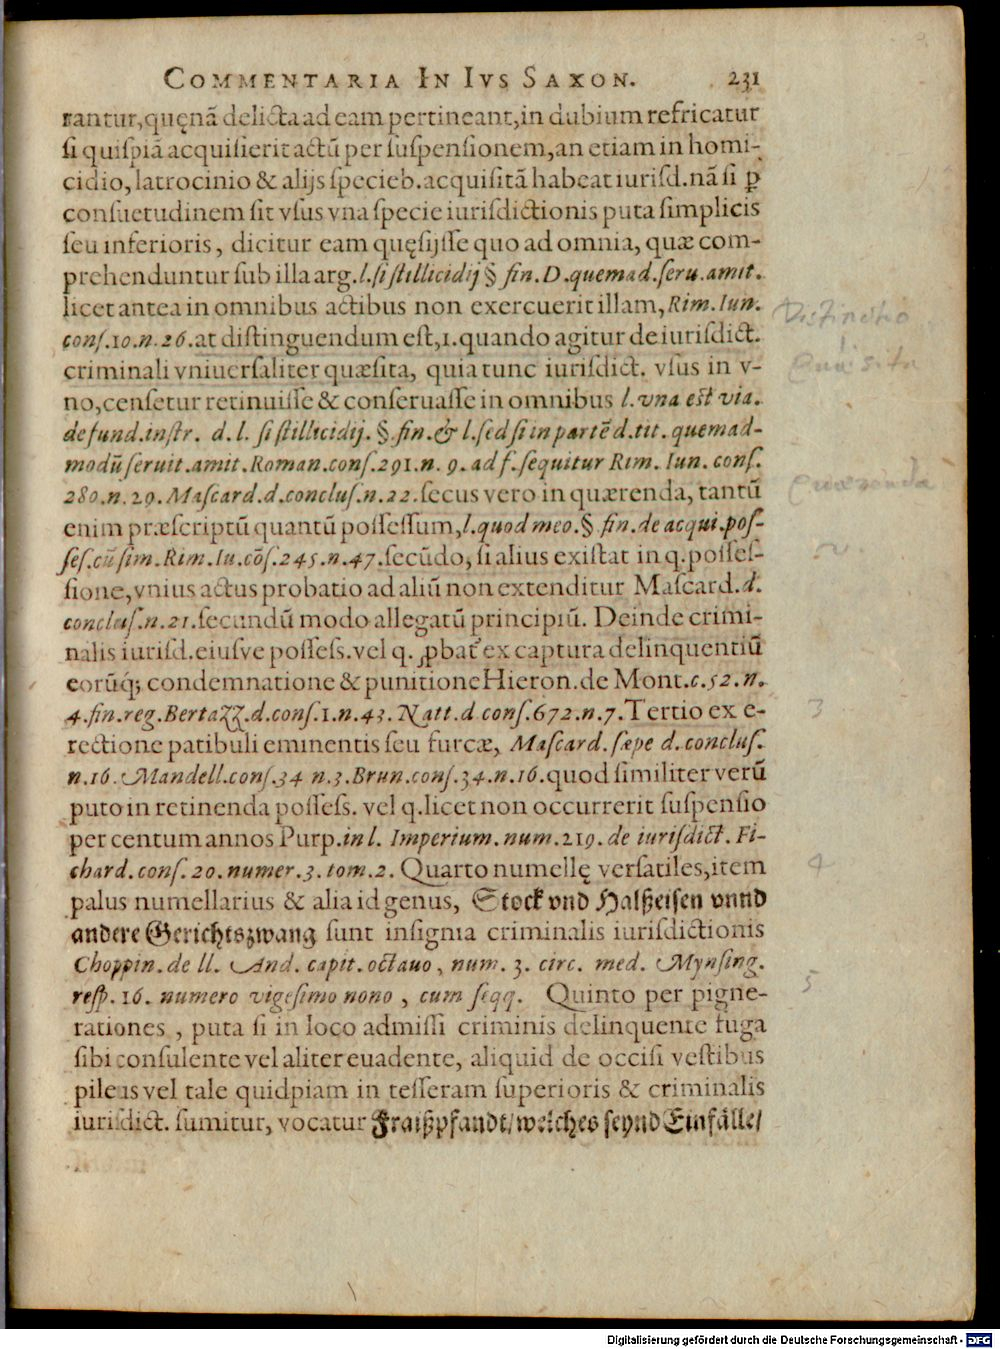 COMMENTARIA IN IVS SAXON. 231
rantur, quęnã delicta ad eam pertineant, in dubium refricatur
si quispiã acquisierit actũ per suspensionem, an etiam in homi-
cidio, latrocinio & alijs specieb. acquisitã habeat iurisd. nã si ꝑ
consuetudinem sit vsus vna specie iurisdictionis puta simplicis
seu inferioris, dicitur eam quęsijsse quo ad omnia, quæ com-
prehenduntur sub illa arg. l. si stillicidij § fin. D. quemad. seru. amit.
licet antea in omnibus actibus non exercuerit illam, Rim. Iun.
cons. 10. n. 26. at distinguendum est, 1. quando agitur de iurisdict.
criminali vniuersaliter quæsita, quia tunc iurisdict. vsus in v-
no, censetur retinuisse & conseruasse in omnibus l. vna est via.
de fund. instr. d. l. si stillicidij. § fin. & l. sed si in partẽ d. tit. quemad-
modũ seruit. amit. Roman. cons. 291. n. 9. ad f. sequitur Rim. Iun. cons.
280. n. 29. Mascard. d. conclus. n. 22. secus vero in quærenda, tantũ
enim præscriptũ quantũ possessum, l. quod meo. § fin. de acqui. pos-
ses. cũ sim. Rim. Iu. cõs. 245. n. 47. secũdo, si alius existat in q. posses-
sione, vnius actus probatio ad aliũ non extenditur Mascard. d.
conclus. n. 21. secundũ modo allegatũ principiũ. Deinde crimi-
nalis iurisd. eiusve possess. vel q. ꝓbat͛ ex captura delinquentiũ
eorũq́; condemnatione & punitione Hieron. de Mont. c. 52. n.
4. fin. reg. Bertazz. d. cons. 1. n. 43. Natt. d cons. 672. n. 7. Tertio ex e-
rectione patibuli eminentis seu furcæ, Mascard. sæpe d. conclus.
n. 16. Mandell. cons. 34 n. 3. Brun. cons. 34. n. 16. quod similiter verũ
puto in retinenda possess. vel q. licet non occurrerit suspensio
per centum annos Purp. in l. Imperium. num. 219. de iurisdict. Fi-
chard. cons. 20. numer. 3. tom. 2. Quarto numellę versatiles, item
palus numellarius & alia id genus, Stock vnd Halßeisen vnnd
andere Gerichtszwang sunt insignia criminalis iurisdictionis
Choppin. de ll. And. capit. octauo, num. 3. circ. med. Mynsing.
resp. 16. numero vigesimo nono, cum seqq. Quinto per pigne-
rationes, puta si in loco admissi criminis delinquente fuga
sibi consulente vel aliter euadente, aliquid de occisi vestibus
pileis vel tale quidpiam in tesseram superioris & criminalis
iurisdict. sumitur, vocatur Fraißpfandt/ welches seynd Einfälle/
Distinctio
Quæsita
Quærenda
2
3
4
5
Digitalisierung gefördert durch die Deutsche Forschungsgemeinschaft - DFG